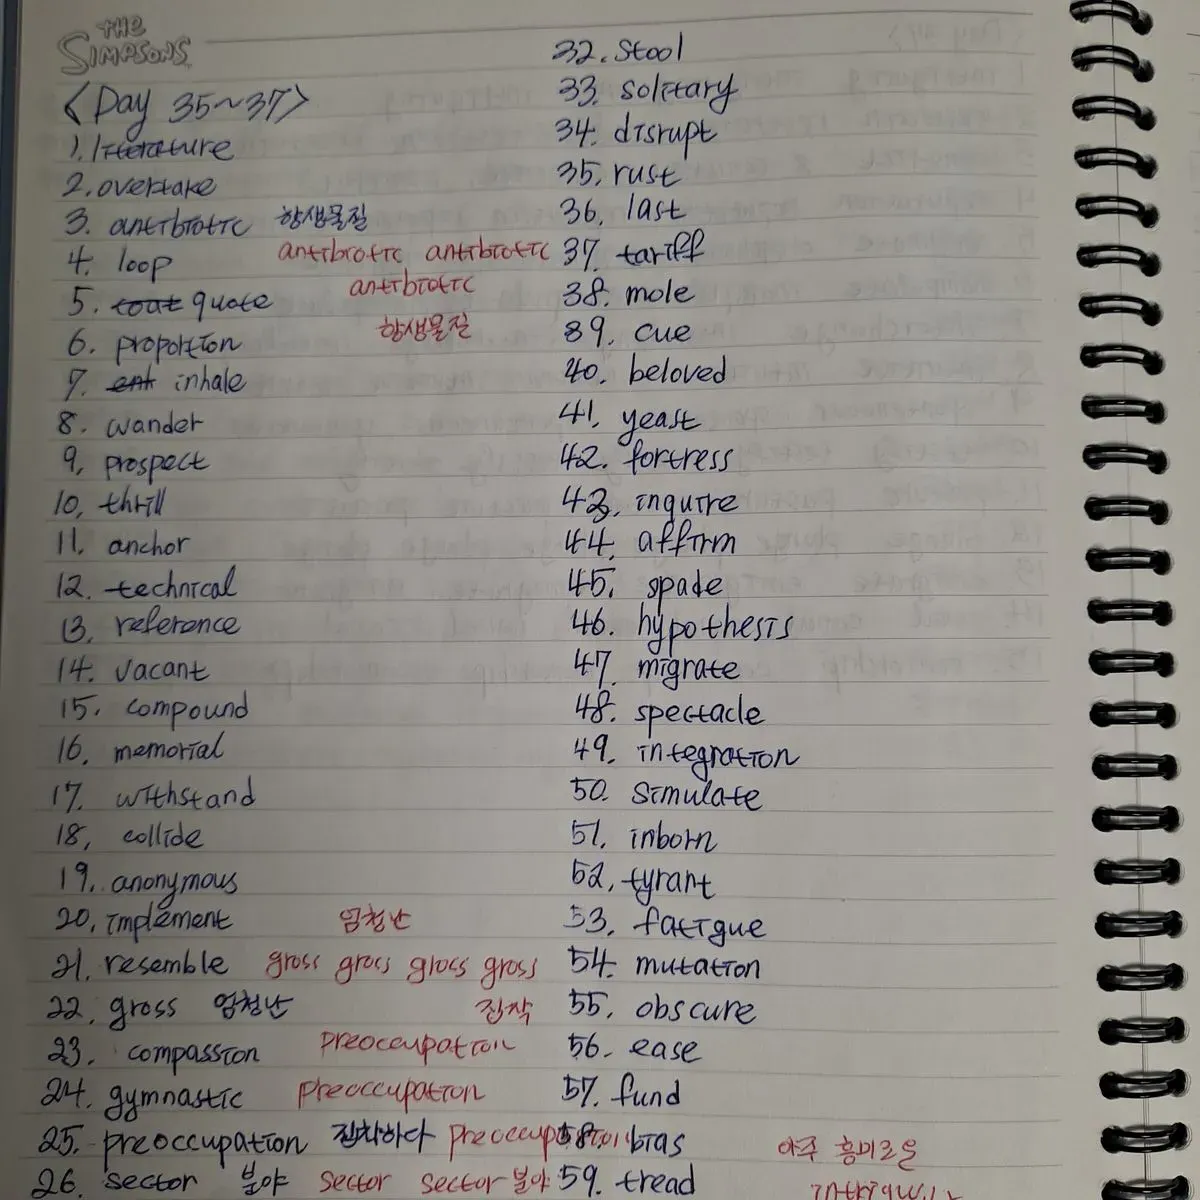 THE
SIMPSONS
<Day 35~37>
1. literature
2. overtake
3. antibiotic 항생물질
4. loop antibiotic antibiotic
antibiotic
5. quote
6. proportion 항생물질
7. inhale
8. wander
9. prospect
10. thrill
11. anchor
12. technical
13. reference
14. vacant
15. compound
16. memorial
17. withstand
18. collide
19. anonymous
20. implement 엄청난
21. resemble gross gross gross gross
22. gross 엄청난 집착
23. compassion preoccupation
24. gymnastic preoccupation
25. preoccupation 집착하다 preoccupation
26. sector 분야 sector sector 분야
32. stool
33. solitary
34. disrupt
35. rust
36. last
37. tariff
38. mole
39. cue
40. beloved
41. yeast
42. fortress
43. inquire
44. affirm
45. spade
46. hypothesis
47. migrate
48. spectacle
49. integration
50. simulate
51. inborn
52. tyrant
53. fatigue
54. mutation
55. obscure
56. ease
57. fund
58. bias 아주 흥미로운
59. tread